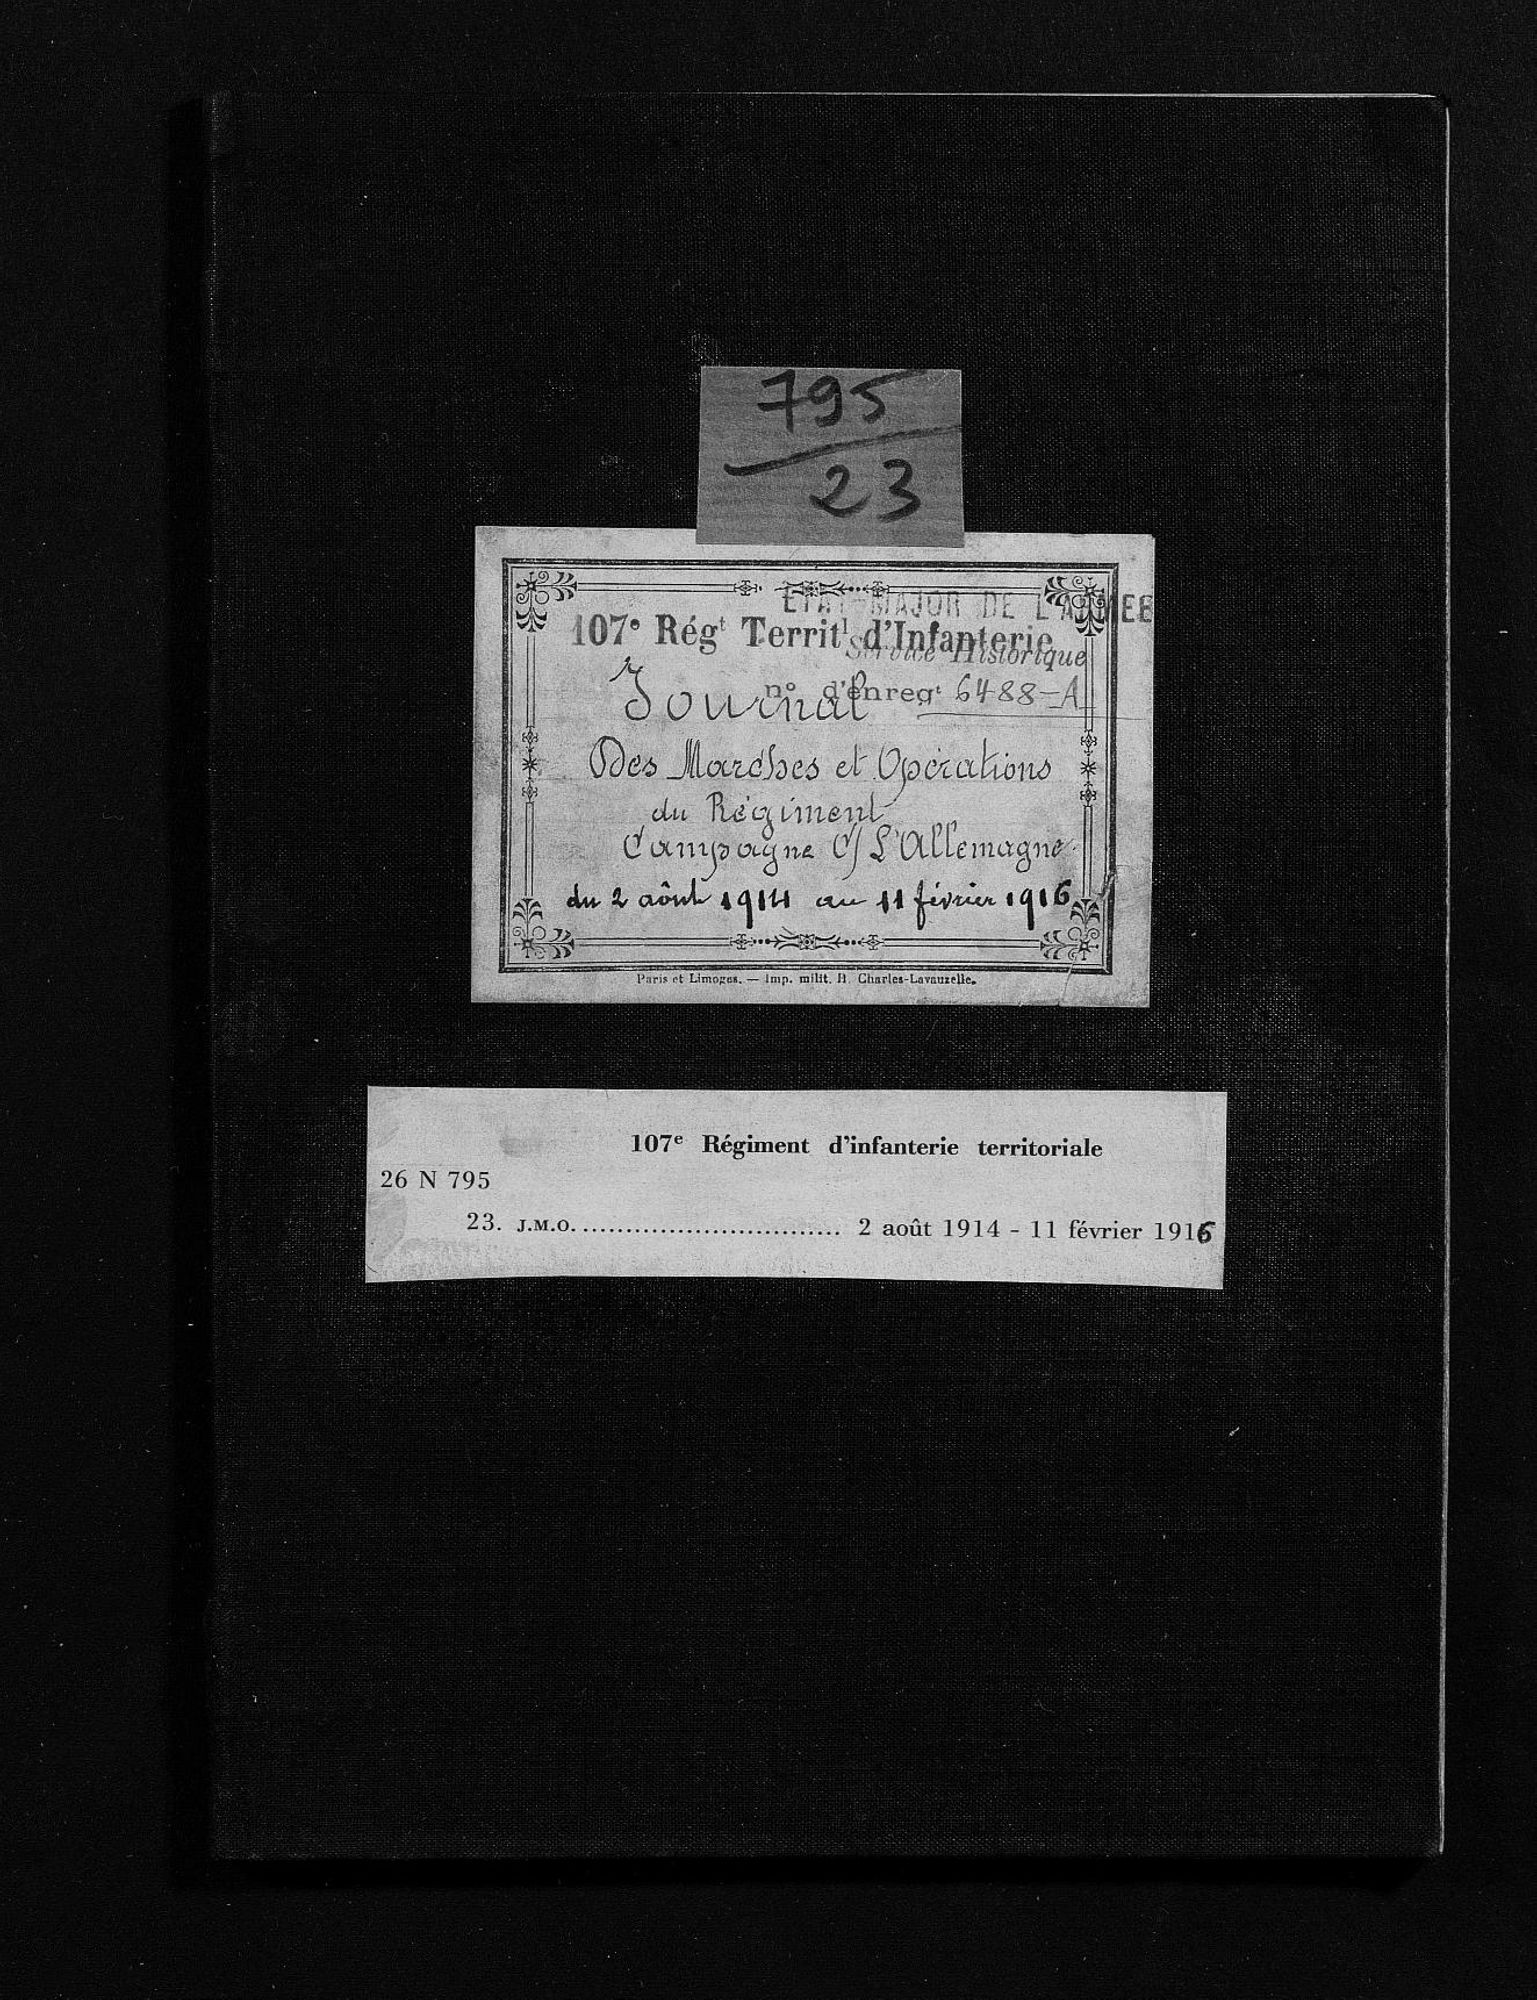 795
23
ETAT-MAJOR DE L'ARMEE
107e Régt Territl d'Infanterie
Service Historique
n° d'enregt 6488-A
Journal
Des Marches et Opérations
du Régiment
Campagne C/ L'Allemagne
du 2 aôut 1914 au 11 février 1916
Paris et Limoges. — Imp. milit. H. Charles-Lavauzelle.
107e Régiment d'infanterie territoriale
26 N 795
23. J.M.O. .............................. 2 août 1914 - 11 février 1916